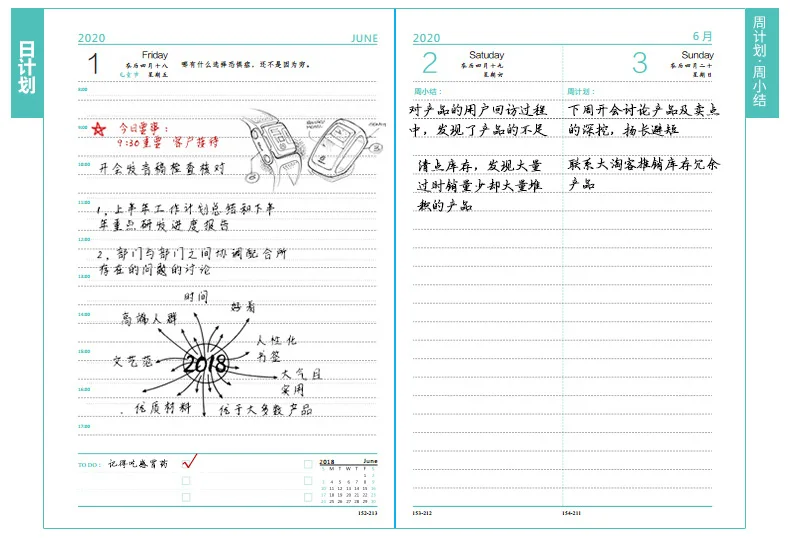 日计划
2020
JUNE
1
Friday
农历四月十八
儿童节 星期五
哪有什么选择恐惧症，还不是因为穷。
8:00
9:00
今日要事：
9:30重要 客户接待
开会发言稿检查核对
11:00
1、上半年工作计划总结和下半
年重点研发进度报告
12:00
2、部门与部门之间协调配合所
存在的问题的讨论
13:00
时间
好看
14:00
高端人群
人性化
书签
15:00
文艺范
2018
大气且
实用
16:00
优质材料
优于大多数产品
17:00
TO DO：
记得吃感冒药
2018 June
S M T W T F S
1 2
3 4 5 6 7 8 9
10 11 12 13 14 15 16
17 18 19 20 21 22 23
24 25 26 27 28 29 30
152-213
2020
6月
2
Satuday
农历四月十九
星期六
3
Sunday
农历四月二十
星期日
周小结：
对产品的用户回访过程
中，发现了产品的不足
清点库存，发现大量
过时销量少却大量堆
积的产品
周计划：
下周开会讨论产品及卖点
的深挖，扬长避短
联系大淘客推销库存冗余
产品
153-212
154-211
周计划·周小结